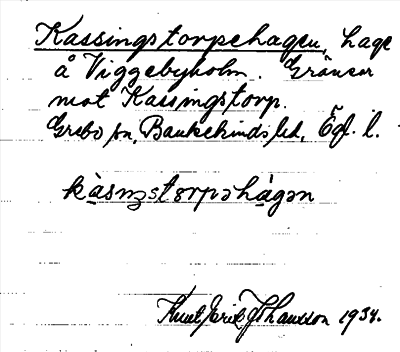 Kassingstorpehagen, hage
å Viggebyholm. Gränsar
mot Kassingstorp.
Grebo sn, Bankekinds hd, Ögl. l.
kàsıŋstɷrpəhàgən
Knut Erik Johansson 1934.